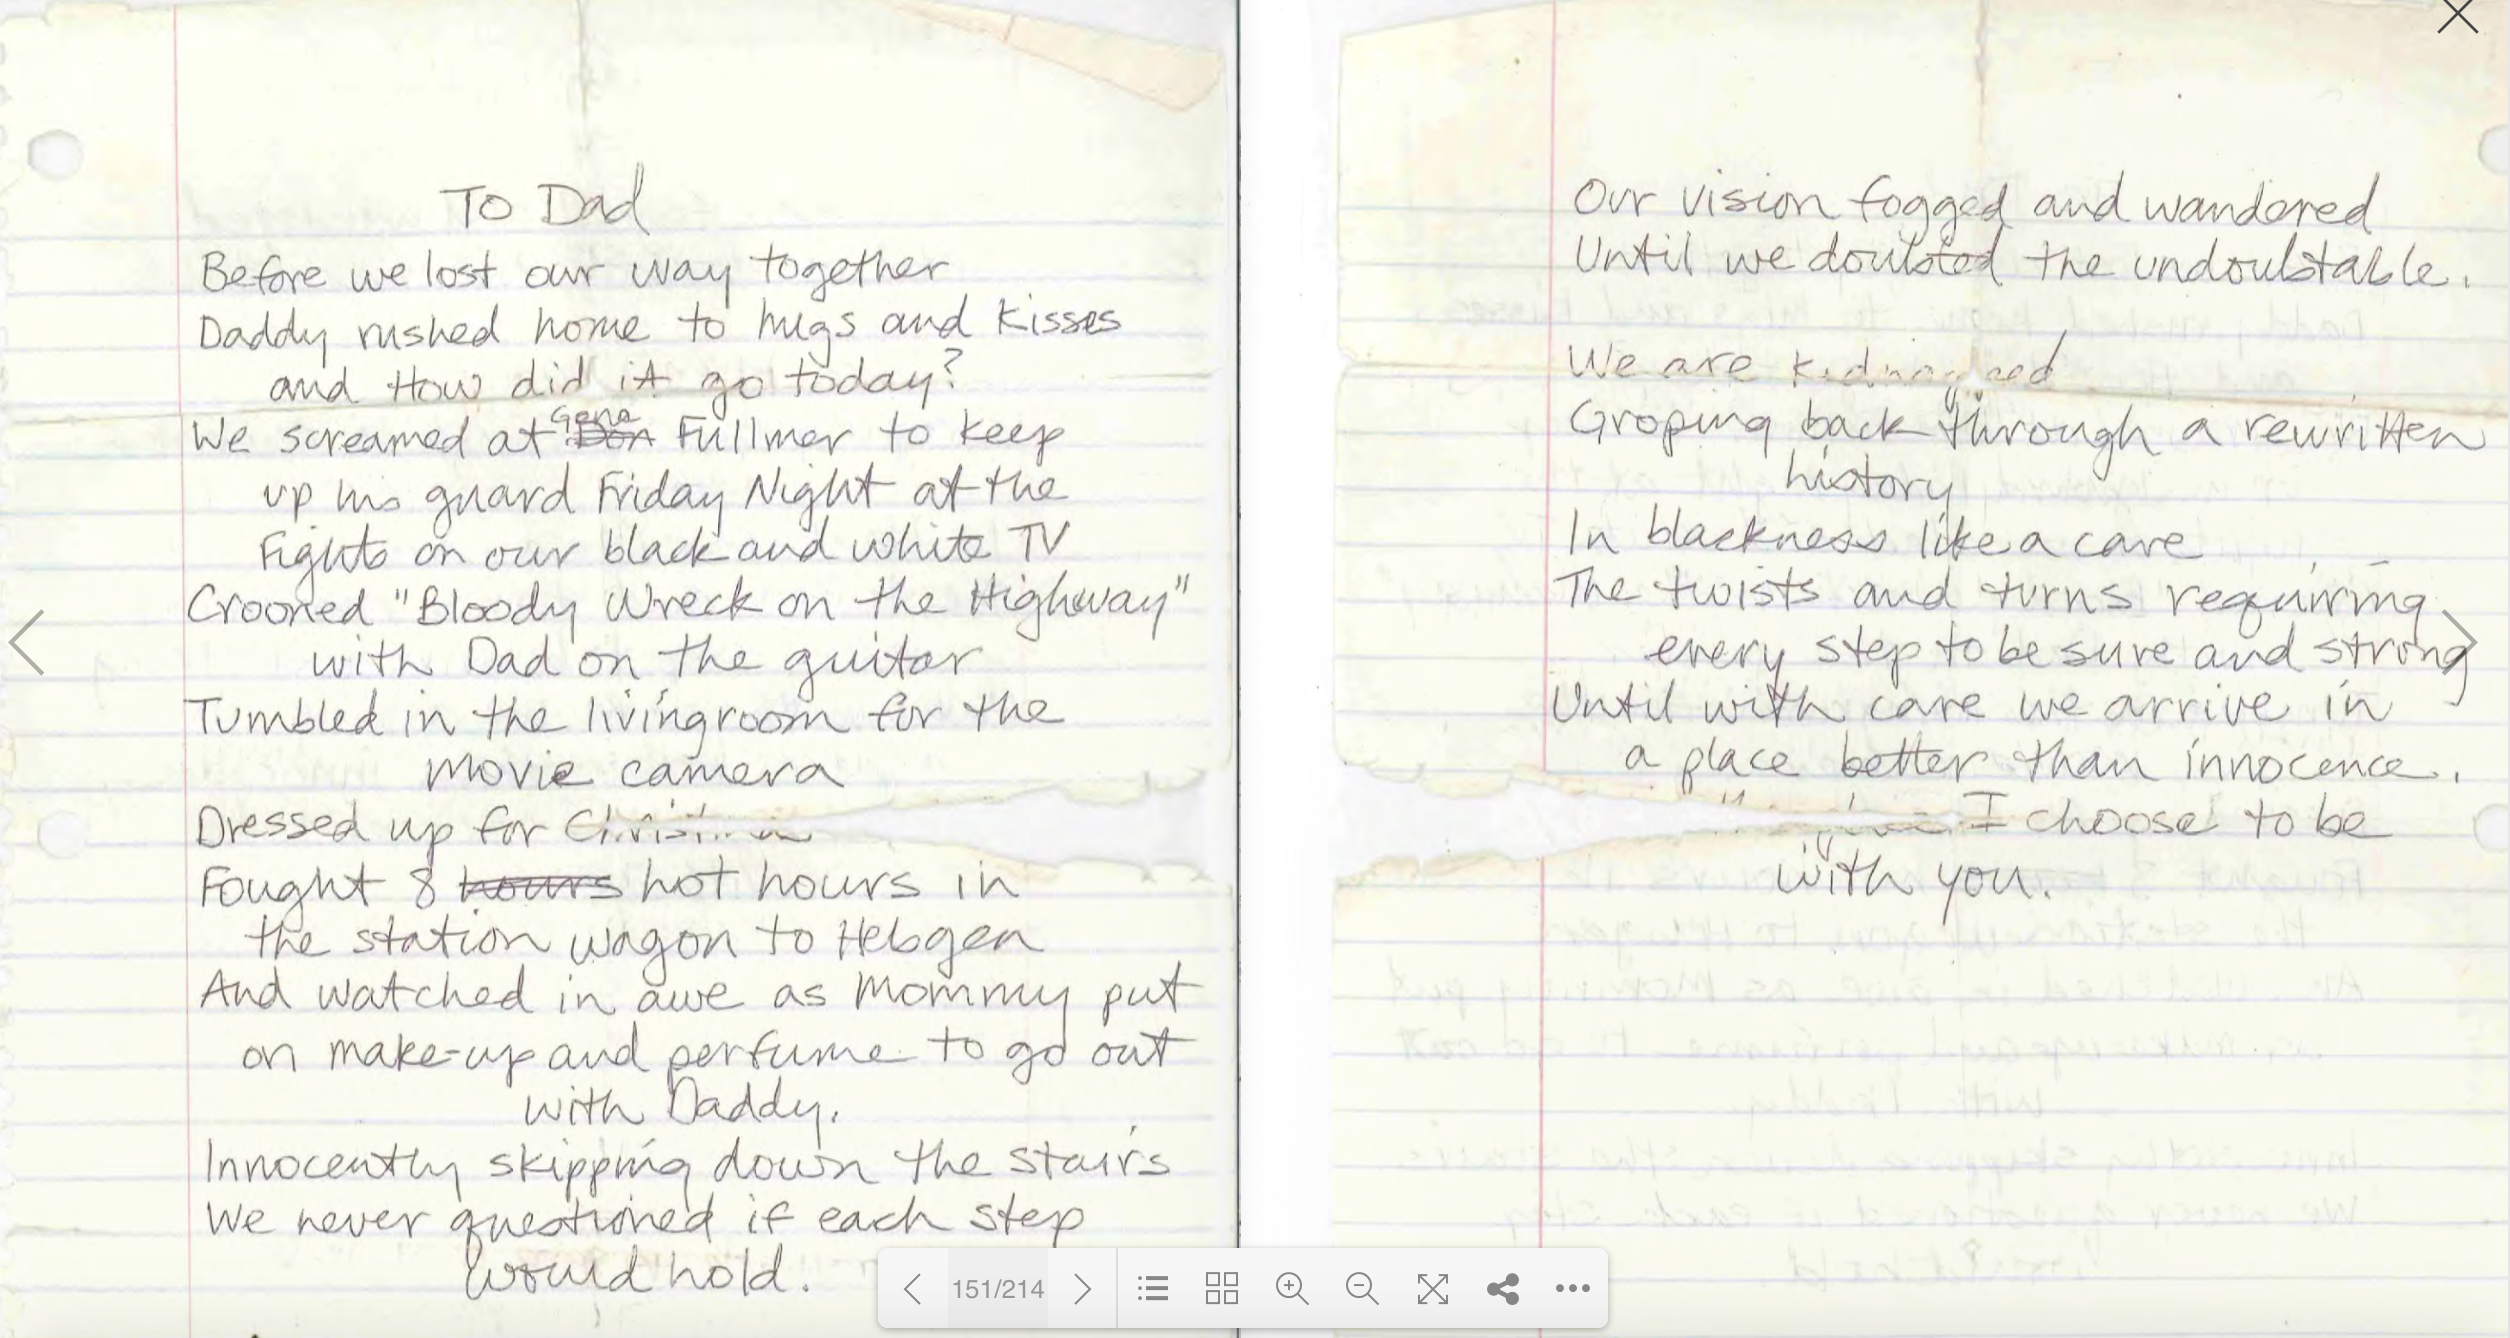 To Dad
Before we lost our way together
Daddy rushed home to hugs and kisses
and How did it go today?
Gene
We screamed at Don Fullmer to keep
up his guard Friday Night at the
Fights on our black and white TV
Crooned "Bloody Wreck on the Highway"
with Dad on the guitar
Tumbled in the livingroom for the
movie camera
Dressed up for
Fought 8 hours hot hours in
the station wagon to Hebgen
And watched in awe as Mommy put
on make-up and perfume to go out
with Daddy.
Innocently skipping down the stairs
We never questioned if each step
would hold.
Our vision fogged and wandered
Until we doubted the undoubtable.
We are kidnapped
Groping back through a rewritten
history
In blackness like a cave
The twists and turns requiring
every step to be sure and strong
Until with care we arrive in
a place better than innocence.
I choose to be
with you.
151/214